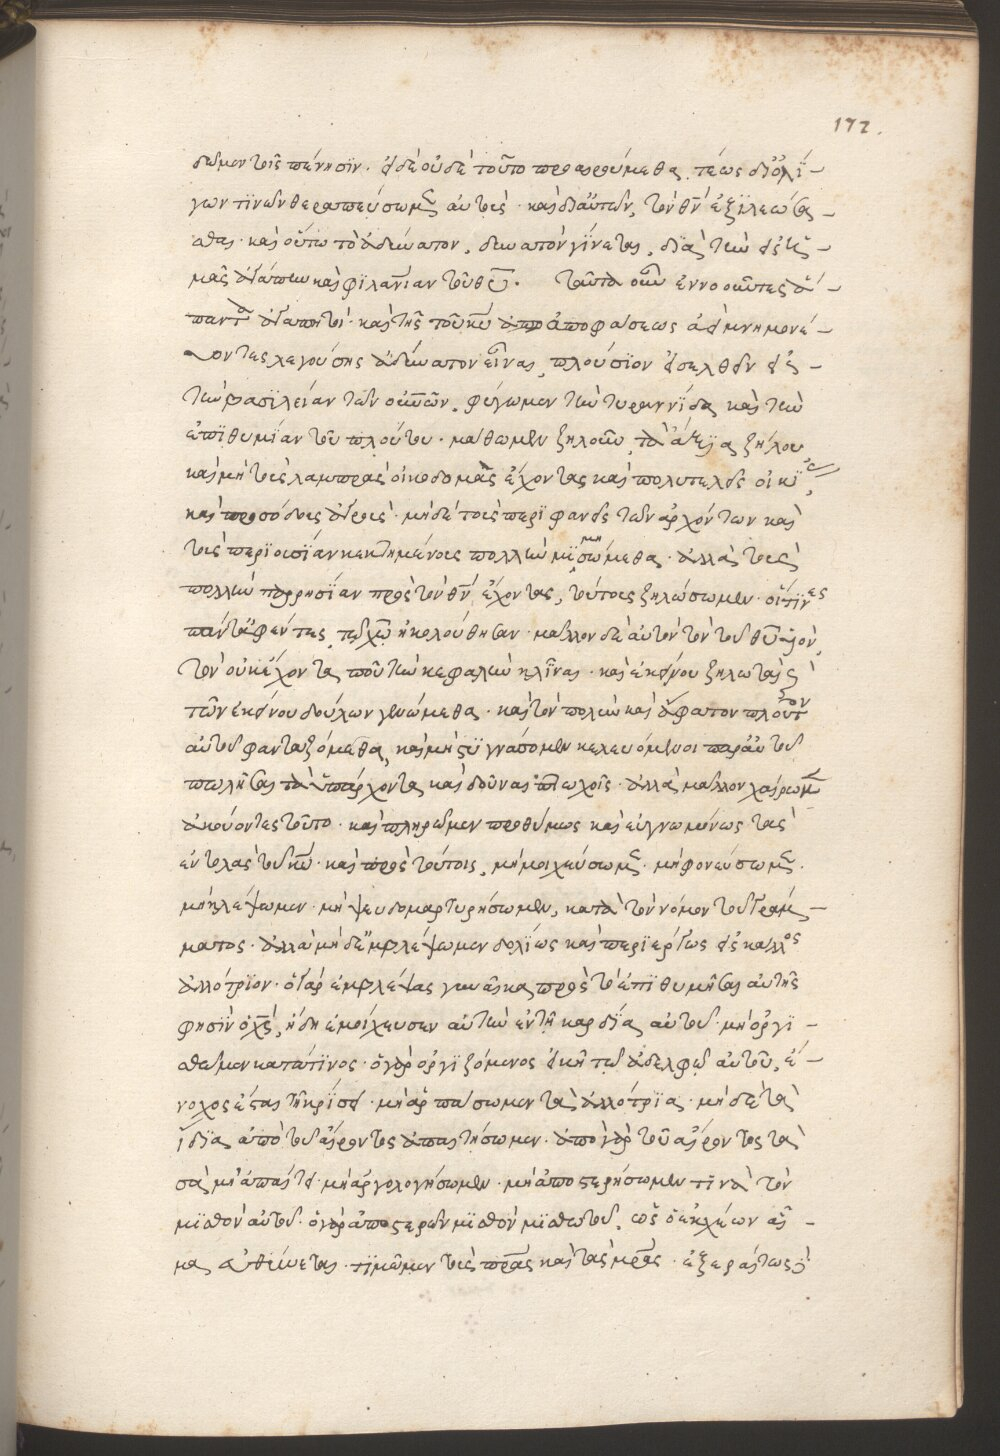 172.
δῶμεν τοῖς πένησϊν. εἰ δὲ οὐδὲ τοῦτο προαιρούμεθα, τέως δϊ' ὀλί-
γων τϊνῶν θεραπεύσωμεν αὐτούς. καὶ δϊ' αὐτῶν, τὸν θν ἐξϊλεώσα-
σθαι. καὶ οὕτω τὸ ἀδύνατον, δυνατὸν γίνεται, δϊὰ τὴν εἰς ἡ-
μᾶς ἀγάπην καὶ φϊλανίαν τοῦ θυ. ταῦτα οὖν ἐννοοῦντες ἅ-
παντα ἀγαπητοὶ. καὶ τῆς τοῦ κυ ἀποφάσεως ἀειμνημονεύ-
οντες λεγούσης ἀδύνατον εἶναι, πλούσϊον εἰσελθεῖν εἰς
τὴν βασϊλείαν τῶν οὐνῶν, φύγωμεν τὴν τυραννίδα καὶ τὴν
ἐπϊθυμίαν τοῦ πλούτου. μάθωμεν ζηλοῦν, τὰ ἄξϊα ζήλου
καὶ μὴ τοὺς λαμπρὰς οἰκοδομὰς ἔχοντας καὶ πολυτελεῖς οἰκίας
καὶ προσόδους ἀγρούς. μηδὲ τοὺς περϊφανεῖς τῶν ἀρχόντων καὶ
τοὺς περϊουσίαν κεκτημένους πολλὴν μϊμησώμεθα. ἀλλὰ τοὺς
πολλὴν παρρησίαν πρὸς τὸν θν ἔχοντας, τούτους ζηλώσωμεν. οἵτϊνες
πάντα ἀφέντες, τῷ χω ἠκολούθησαν. μᾶλλον δὲ αὐτὸν τὸν τοῦ θυ υἱόν,
τὸν οὐκ ἔχοντα ποῦ τὴν κεφαλὴν κλῖναι. καὶ ἐκείνου ζηλωταὶ
τῶν ἐκείνου δούλων γενώμεθα. καὶ τὸν πολὺν καὶ ἄφατον πλοῦτον
αὐτοῦ φανταζόμεθα, καὶ μὴ στυγνάσομεν κελευόμενοι παρ' αὐτοῦ
πωλῆσαι τὰ ὑπάρχοντα καὶ δοῦναι πτωχοῖς. ἀλλὰ μᾶλλον χαίρωμεν
ἀκούοντες τοῦτο. καὶ πληρῶμεν προθύμως καὶ εὐγνωμόνως τὰς
ἐντολὰς τοῦ κυ. καὶ πρὸς τούτοις, μὴ μοιχεύσωμεν. μὴ φονεύσωμεν.
μὴ κλέψωμεν. μὴ ψευδομαρτυρήσωμεν, κατὰ τὸν νόμον τοῦ γράμ-
ματος. ἀλλὰ μὴ δὲ ἐμβλέψωμεν δολίως καὶ περϊέργως εἰς κάλλος
ἀλλότρϊον. ὁ γὰρ ἐμβλέψας γυναῖκα πρὸς τὸ ἐπϊθυμῆσαι αὐτῆς
φησὶν ὁ χς, ἤδη ἐμοίχευσεν αὐτὴν ἐν τῇ καρδίᾳ αὐτοῦ. μὴ ὀργϊ-
σθῶμεν κατά τϊνος. ὁ γὰρ ὀργϊζόμενος εἰκῆ τῷ ἀδελφῷ αὐτοῦ, ἔ-
νοχος ἔσται τῇ κρίσει. μὴ ἁρπάσωμεν τὰ ἀλλότρϊα. μὴ δὲ τὰ
ἴδϊα ἀπὸ τοῦ αἴροντος ἀπαιτήσωμεν. ἀπὸ γὰρ τοῦ αἴροντος τὰ
σὰ μὴ ἀπαίτει. μὴ ἀργολογήσωμεν. μὴ ἀποστερήσωμεν τϊνὰ τὸν
μϊσθὸν αὐτοῦ. ὁ γὰρ ἀποστερῶν μϊσθὸν μϊσθωτοῦ, ὡς ὁ ἐκχέων αἷ-
μα εὐθύνεται. τϊμῶμεν τοὺς πρας καὶ τὰς μρας. ἐξεραίτως